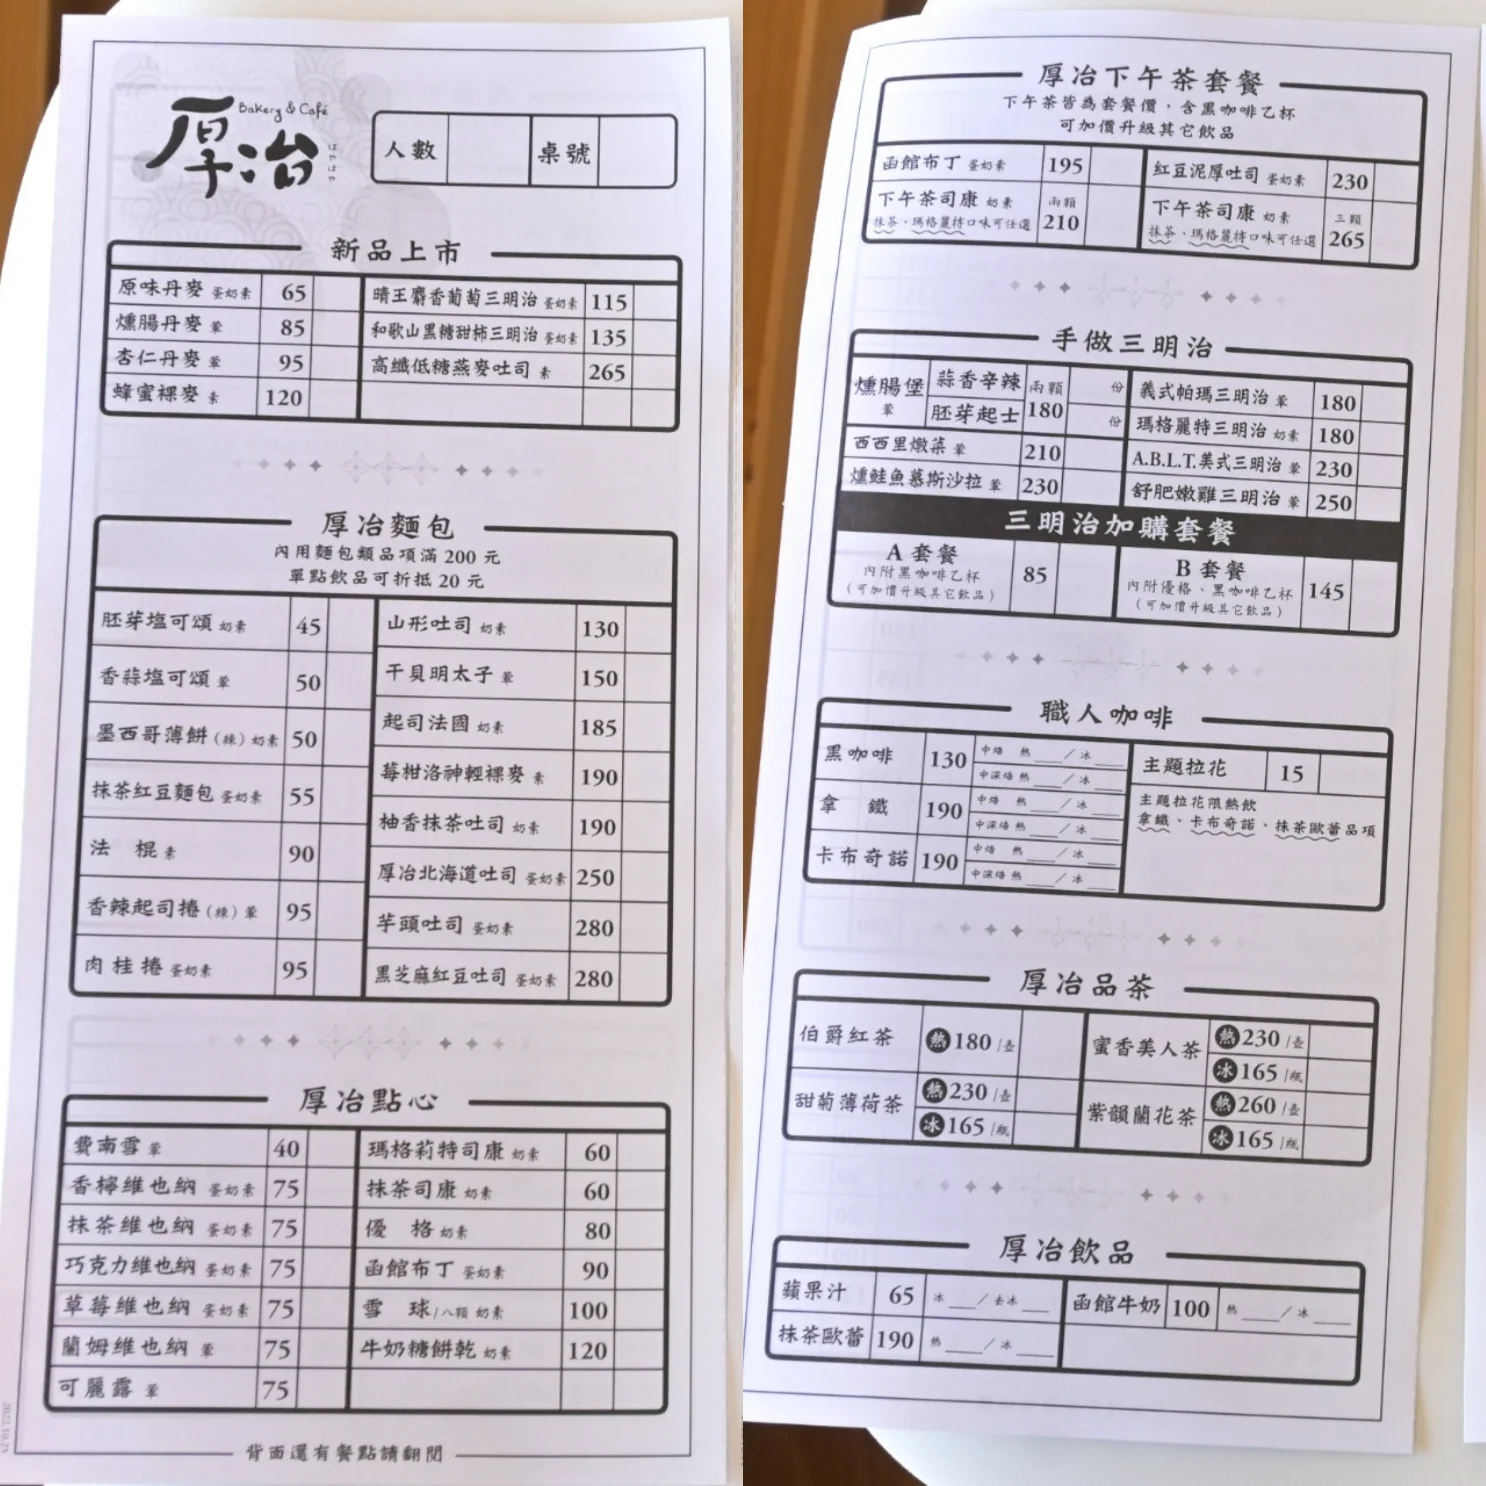 厚冶
Bakery & Café
はやはや
人數
桌號
新品上市
原味丹麥 蛋奶素 65
燻腸丹麥 葷 85
杏仁丹麥 葷 95
蜂蜜裸麥 素 120
晴王麝香葡萄三明治 蛋奶素 115
和歌山黑糖甜柿三明治 蛋奶素 135
高纖低糖燕麥吐司 素 265
厚冶麵包
內用麵包類品項滿 200 元
單點飲品可折抵 20 元
胚芽塩可頌 奶素 45
香蒜塩可頌 葷 50
墨西哥薄餅(辣) 奶素 50
抹茶紅豆麵包 蛋奶素 55
法 棍 素 90
香辣起司捲(辣) 葷 95
肉桂捲 蛋奶素 95
山形吐司 奶素 130
干貝明太子 葷 150
起司法國 奶素 185
莓柑洛神輕裸麥 素 190
柚香抹茶吐司 奶素 190
厚冶北海道吐司 蛋奶素 250
芋頭吐司 蛋奶素 280
黑芝麻紅豆吐司 蛋奶素 280
厚冶點心
費南雪 葷 40
香檸維也納 蛋奶素 75
抹茶維也納 蛋奶素 75
巧克力維也納 蛋奶素 75
草莓維也納 蛋奶素 75
蘭姆維也納 葷 75
可麗露 葷 75
瑪格莉特司康 奶素 60
抹茶司康 奶素 60
優 格 奶素 80
函館布丁 蛋奶素 90
雪 球/八顆 奶素 100
牛奶糖餅乾 奶素 120
背面還有餐點請翻閱
2022.10.25
厚冶下午茶套餐
下午茶皆為套餐價，含黑咖啡乙杯
可加價升級其它飲品
函館布丁 蛋奶素 195
下午茶司康 奶素 兩顆
抹茶、瑪格麗特口味可任選 210
紅豆泥厚吐司 蛋奶素 230
下午茶司康 奶素 三顆
抹茶、瑪格麗特口味可任選 265
手做三明治
燻腸堡 葷
蒜香辛辣 兩顆 份
胚芽起士 180 份
西西里燉菜 葷 210
燻鮭魚慕斯沙拉 葷 230
義式帕瑪三明治 葷 180
瑪格麗特三明治 奶素 180
A.B.L.T.美式三明治 葷 230
舒肥嫩雞三明治 葷 250
三明治加購套餐
A 套餐 85
內附黑咖啡乙杯
(可加價升級其它飲品)
B 套餐 145
內附優格、黑咖啡乙杯
(可加價升級其它飲品)
職人咖啡
黑咖啡 130
中焙 熱 ___ / 冰 ___
中深焙 熱 ___ / 冰 ___
拿 鐵 190
中焙 熱 ___ / 冰 ___
中深焙 熱 ___ / 冰 ___
卡布奇諾 190
中焙 熱 ___ / 冰 ___
中深焙 熱 ___ / 冰 ___
主題拉花 15
主題拉花限熱飲
拿鐵、卡布奇諾、抹茶歐蕾品項
厚冶品茶
伯爵紅茶 熱 180 /壺
甜菊薄荷茶 熱 230 /壺
冰 165 /瓶
蜜香美人茶 熱 230 /壺
冰 165 /瓶
紫韻蘭花茶 熱 260 /壺
冰 165 /瓶
厚冶飲品
蘋果汁 65 冰 ___ / 去冰 ___
抹茶歐蕾 190 熱 ___ / 冰 ___
函館牛奶 100 熱 ___ / 冰 ___